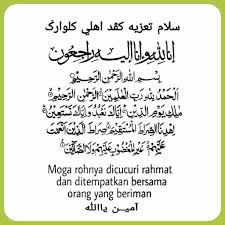 سلام تعزيه كڤد اهلي كلوارݢ
إنا لله وإنا إليه راجعون
بِسْمِ اللَّهِ الرَّحْمَنِ الرَّحِيمِ
الْحَمْدُ لِلَّهِ رَبِّ الْعَالَمِينَ الرَّحْمَنِ الرَّحِيمِ
مَالِكِ يَوْمِ الدِّينِ إِيَّاكَ نَعْبُدُ وَإِيَّاكَ نَسْتَعِينُ
اهْدِنَا الصِّرَاطَ الْمُسْتَقِيمَ صِرَاطَ الَّذِينَ أَنْعَمْتَ
عَلَيْهِمْ غَيْرِ الْمَغْضُوبِ عَلَيْهِمْ وَلَا الضَّالِّينَ
Moga rohnya dicucuri rahmat
dan ditempatkan bersama
orang yang beriman
آمين ياالله